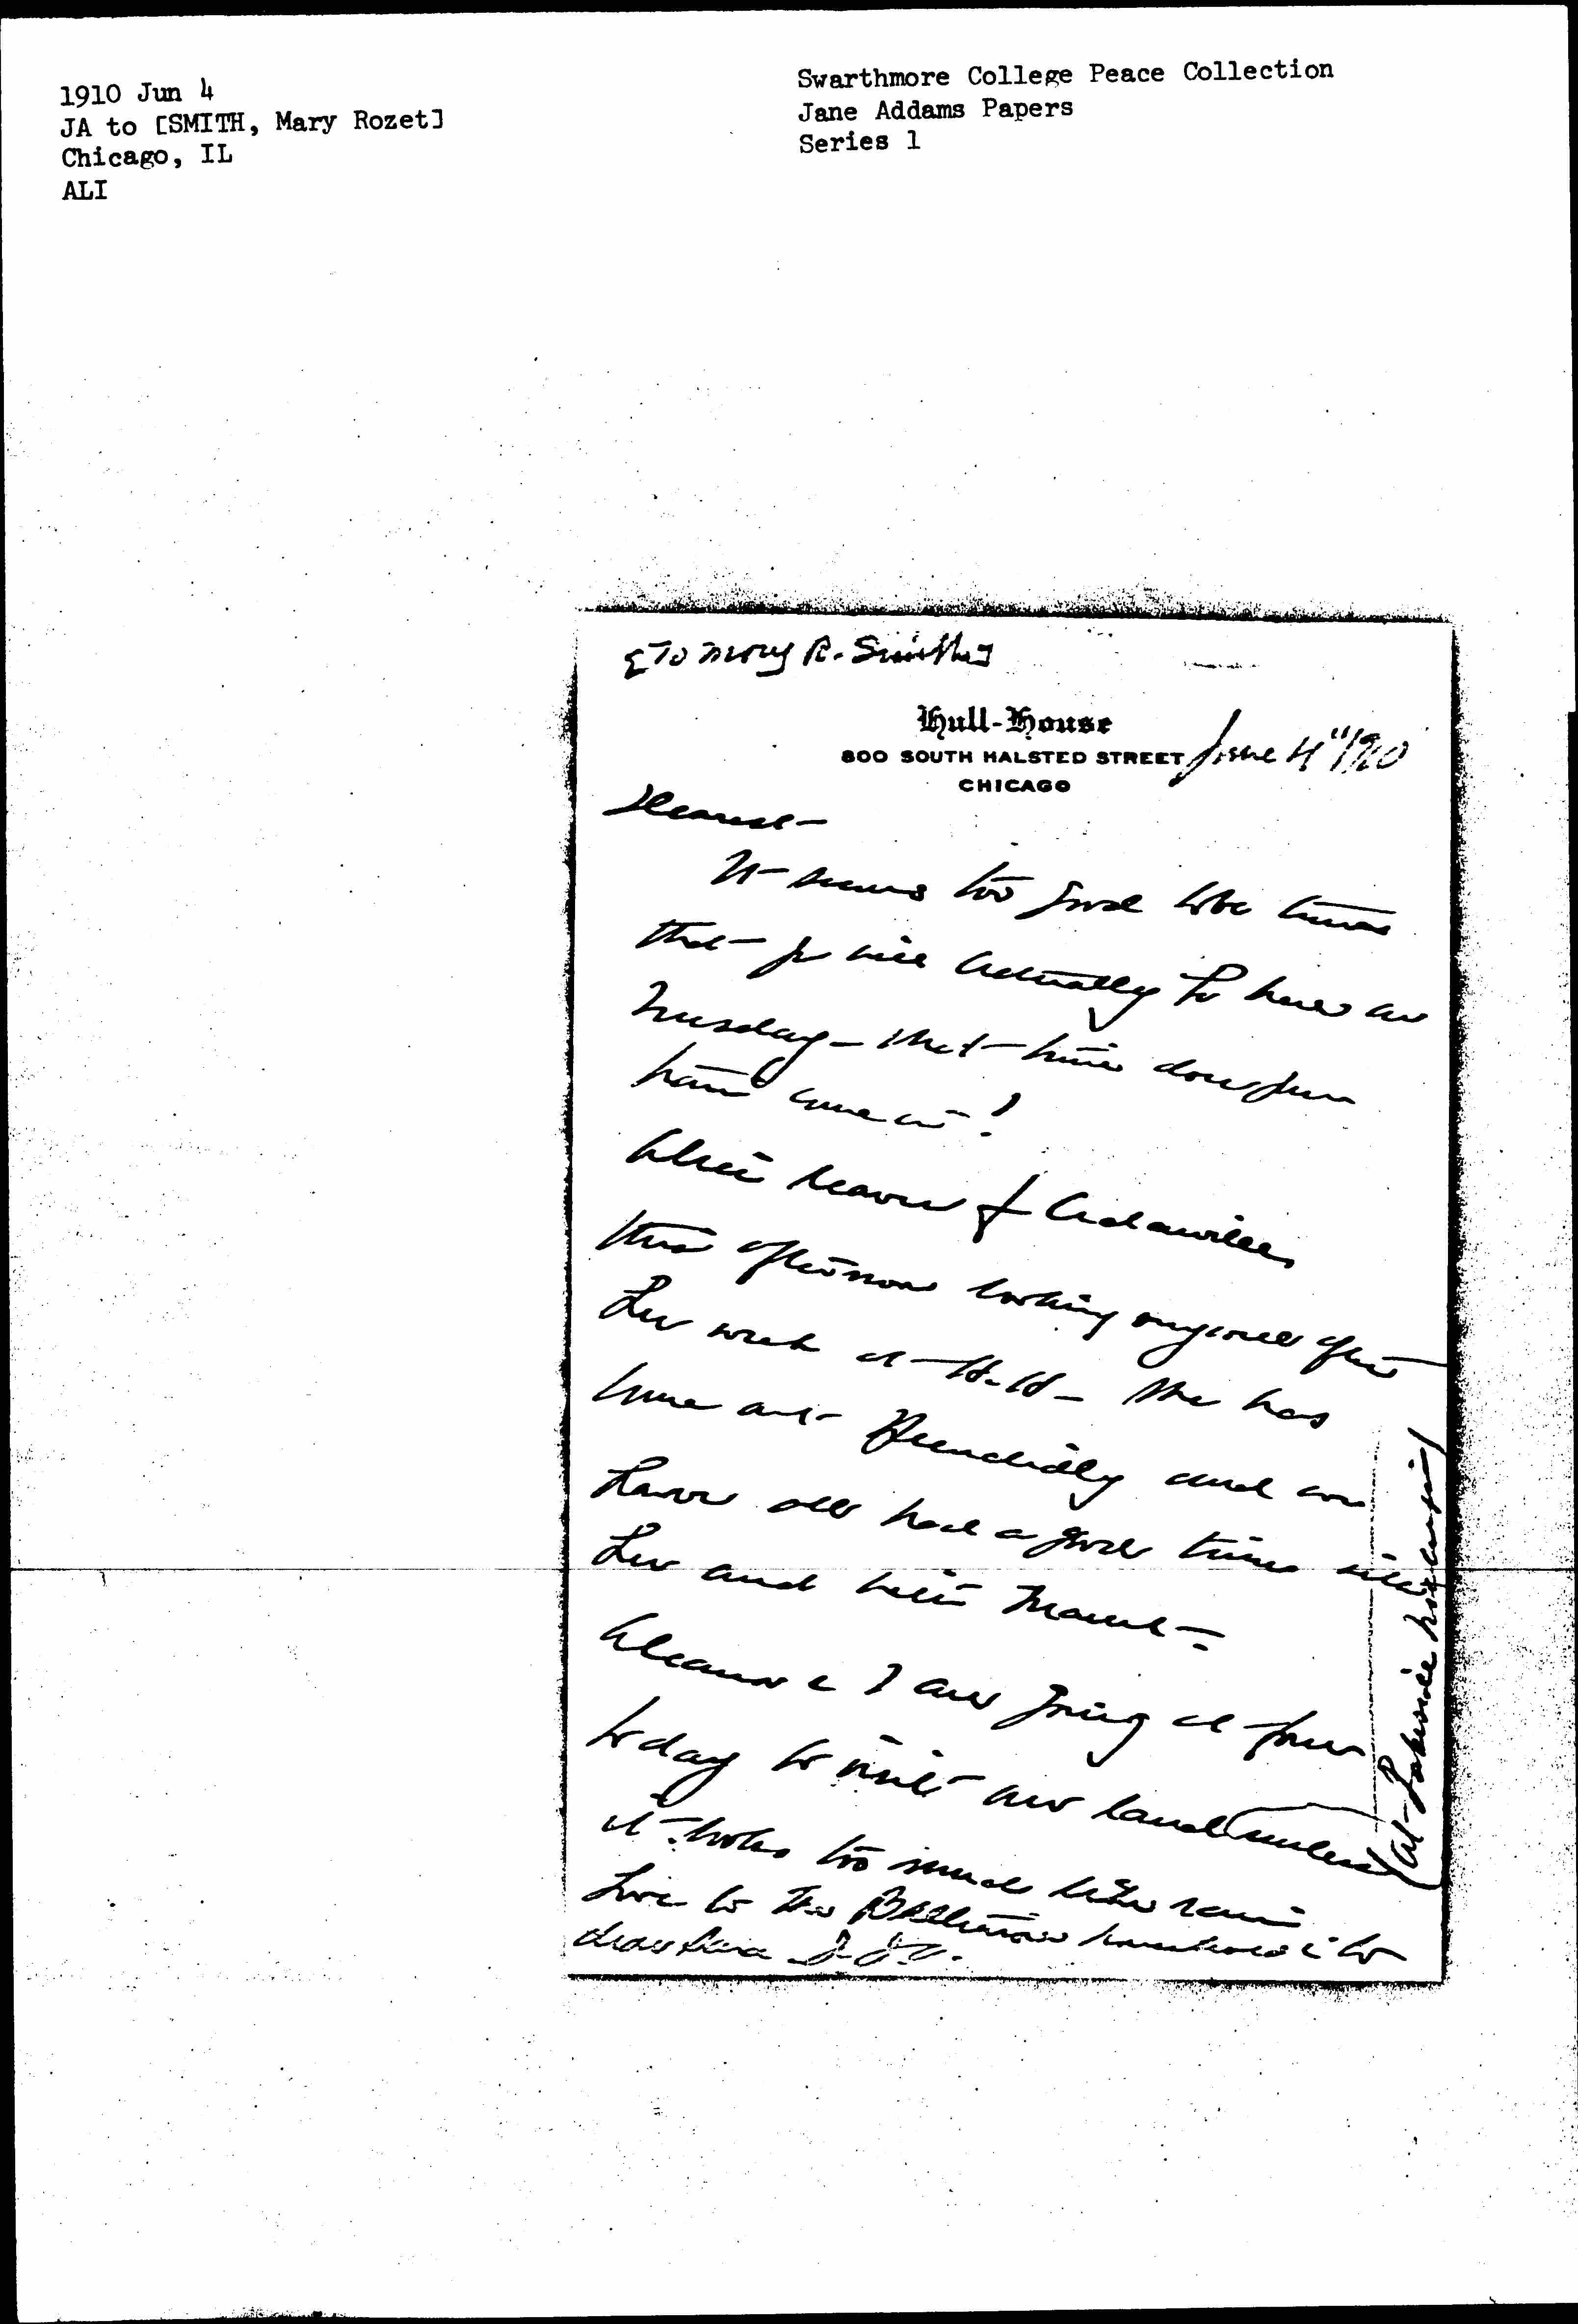 1910 Jun 4
JA to [SMITH, Mary Rozet]
Chicago, IL
ALI
Swarthmore College Peace Collection
Jane Addams Papers
Series 1
[To Mary R. Smith]
Hull-House
800 SOUTH HALSTED STREET June 4" 1910
CHICAGO
Dearest-
It seems too good to be true
that you will actually be here on
Tuesday - What time does your
train come in!
Alice leaves for Cedarville
this afternoon looking very well after
her week at H-H - She has
come out splendidly and we
have all had a good time with
her and little Marcet -
Eleanor & I are going at four
today to visit our land unless
it looks too much like rain
Love to the household & to
dear J.A.
(at Lakeside